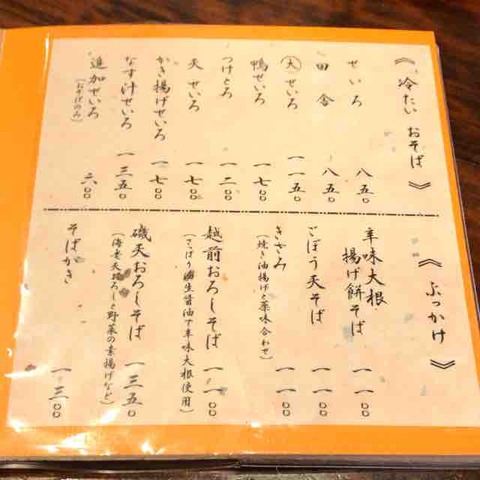 《冷たい おそば》
せいろ 八五〇
田舎 八五〇
大せいろ 一一五〇
鴨せいろ 一七〇〇
つけとろ 一二〇〇
天せいろ 一七〇〇
かき揚げせいろ 一七〇〇
なす汁せいろ 一三五〇
追加せいろ 六〇〇
(おそばのみ)
《ぶっかけ》
辛味大根
揚げ餅そば 一一〇〇
ごぼう天そば 一一〇〇
きざみ 一一〇〇
(焼き油揚げと薬味合わせ)
越前おろしそば 一一〇〇
生醤油で辛味大根使用)
磯天おろしそば 一三五〇
(海老天おろしと野菜の素揚げなど)
そばかき 一三〇〇